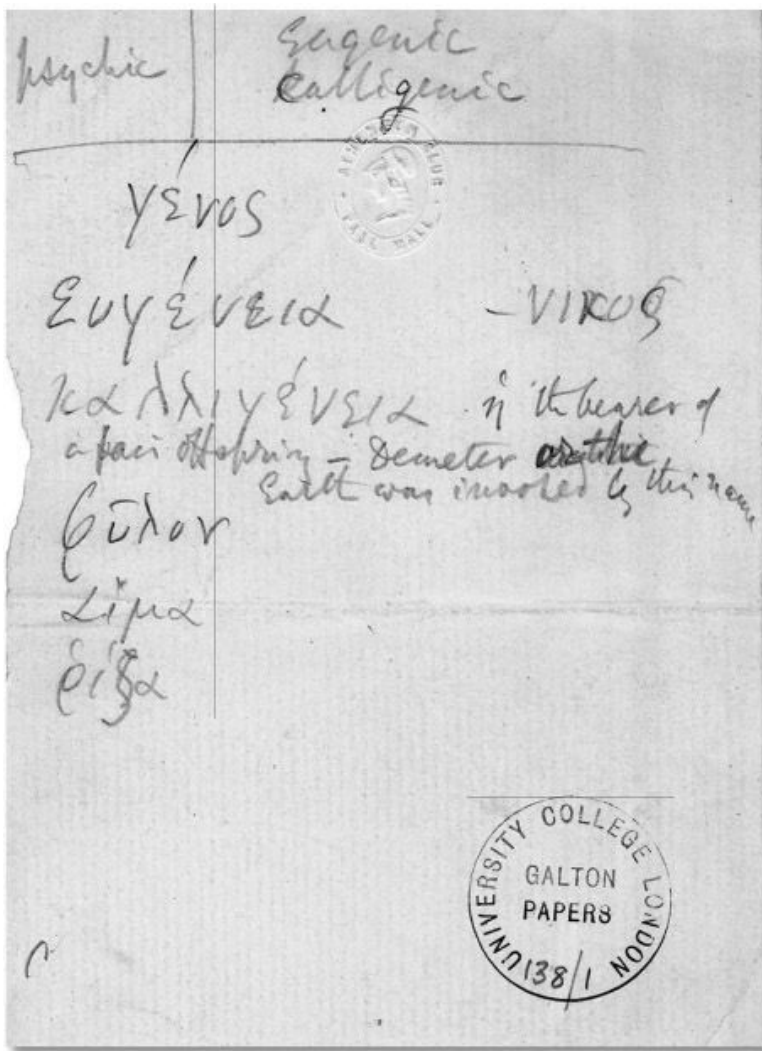 psychic
Eugenic
Calligenic
ATHENÆUM CLUB
PALL MALL
γένος
ευγένεια -νικος
καλλιγένεια ἡ the bearer of
a fair offspring – Demeter
Earth was invoked by this name
φῦλον
αἷμα
ῥίζα
UNIVERSITY COLLEGE LONDON
GALTON
PAPERS
138/1